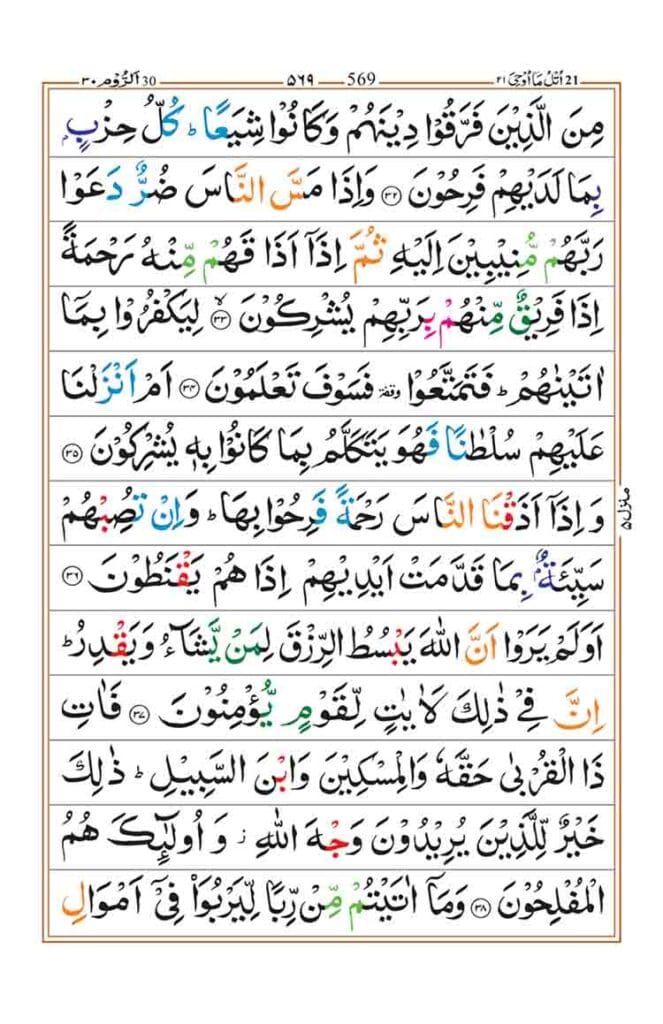 اُتْلُ مَاۤ اُوْحِیَ ٢١ 21 569 ۵۶۹ اَلرُّوْم ٣٠ 30
مِنَ الَّذِیْنَ فَرَّقُوْا دِیْنَهُمْ وَكَانُوْا شِیَعًا ؕ كُلُّ حِزْبٍۭ
بِمَا لَدَیْهِمْ فَرِحُوْنَ ﴿۳۲﴾ وَاِذَا مَسَّ النَّاسَ ضُرٌّ دَعَوْا
رَبَّهُمْ مُّنِیْبِیْنَ اِلَیْهِ ثُمَّ اِذَاۤ اَذَا قَهُمْ مِّنْهُ رَحْمَةً
اِذَا فَرِیْقٌ مِّنْهُمْ بِرَبِّهِمْ یُشْرِكُوْنَ ﴿۳۳﴾ۙ لِیَكْفُرُوْا بِمَاۤ
اٰتَیْنٰهُمْ ؕ فَتَمَتَّعُوْا ٝوقفۃ فَسَوْفَ تَعْلَمُوْنَ ﴿۳۴﴾ اَمْ اَنْزَلْنَا
عَلَیْهِمْ سُلْطٰنًا فَهُوَ یَتَكَلَّمُ بِمَا كَانُوْا بِهٖ یُشْرِكُوْنَ ﴿۳۵﴾
وَ اِذَاۤ اَذَقْنَا النَّاسَ رَحْمَةً فَرِحُوْا بِهَا ؕ وَاِنْ تُصِبْهُمْ
سَیِّئَةٌۢ بِمَا قَدَّمَتْ اَیْدِیْهِمْ اِذَا هُمْ یَقْنَطُوْنَ ﴿۳۶﴾
اَوَلَمْ یَرَوْا اَنَّ اللّٰهَ یَبْسُطُ الرِّزْقَ لِمَنْ یَّشَآءُ وَیَقْدِرُ ؕ
اِنَّ فِیْ ذٰلِكَ لَاٰیٰتٍ لِّقَوْمٍ یُّؤْمِنُوْنَ ﴿۳۷﴾ فَاٰتِ
ذَا الْقُرْبٰی حَقَّهٗ وَالْمِسْكِیْنَ وَابْنَ السَّبِیْلِ ؕ ذٰلِكَ
خَیْرٌ لِّلَّذِیْنَ یُرِیْدُوْنَ وَجْهَ اللّٰهِ ؗ وَ اُولٰٓئِكَ هُمُ
الْمُفْلِحُوْنَ ﴿۳۸﴾ وَمَاۤ اٰتَیْتُمْ مِّنْ رِّبًا لِّیَرْبُوَا۠ فِیْۤ اَمْوَالِ
منزل ۵